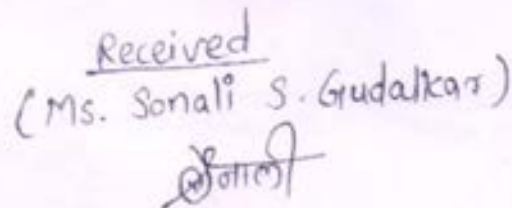 Received
(Ms. Sonali S. Gudalkar)
सोनाली